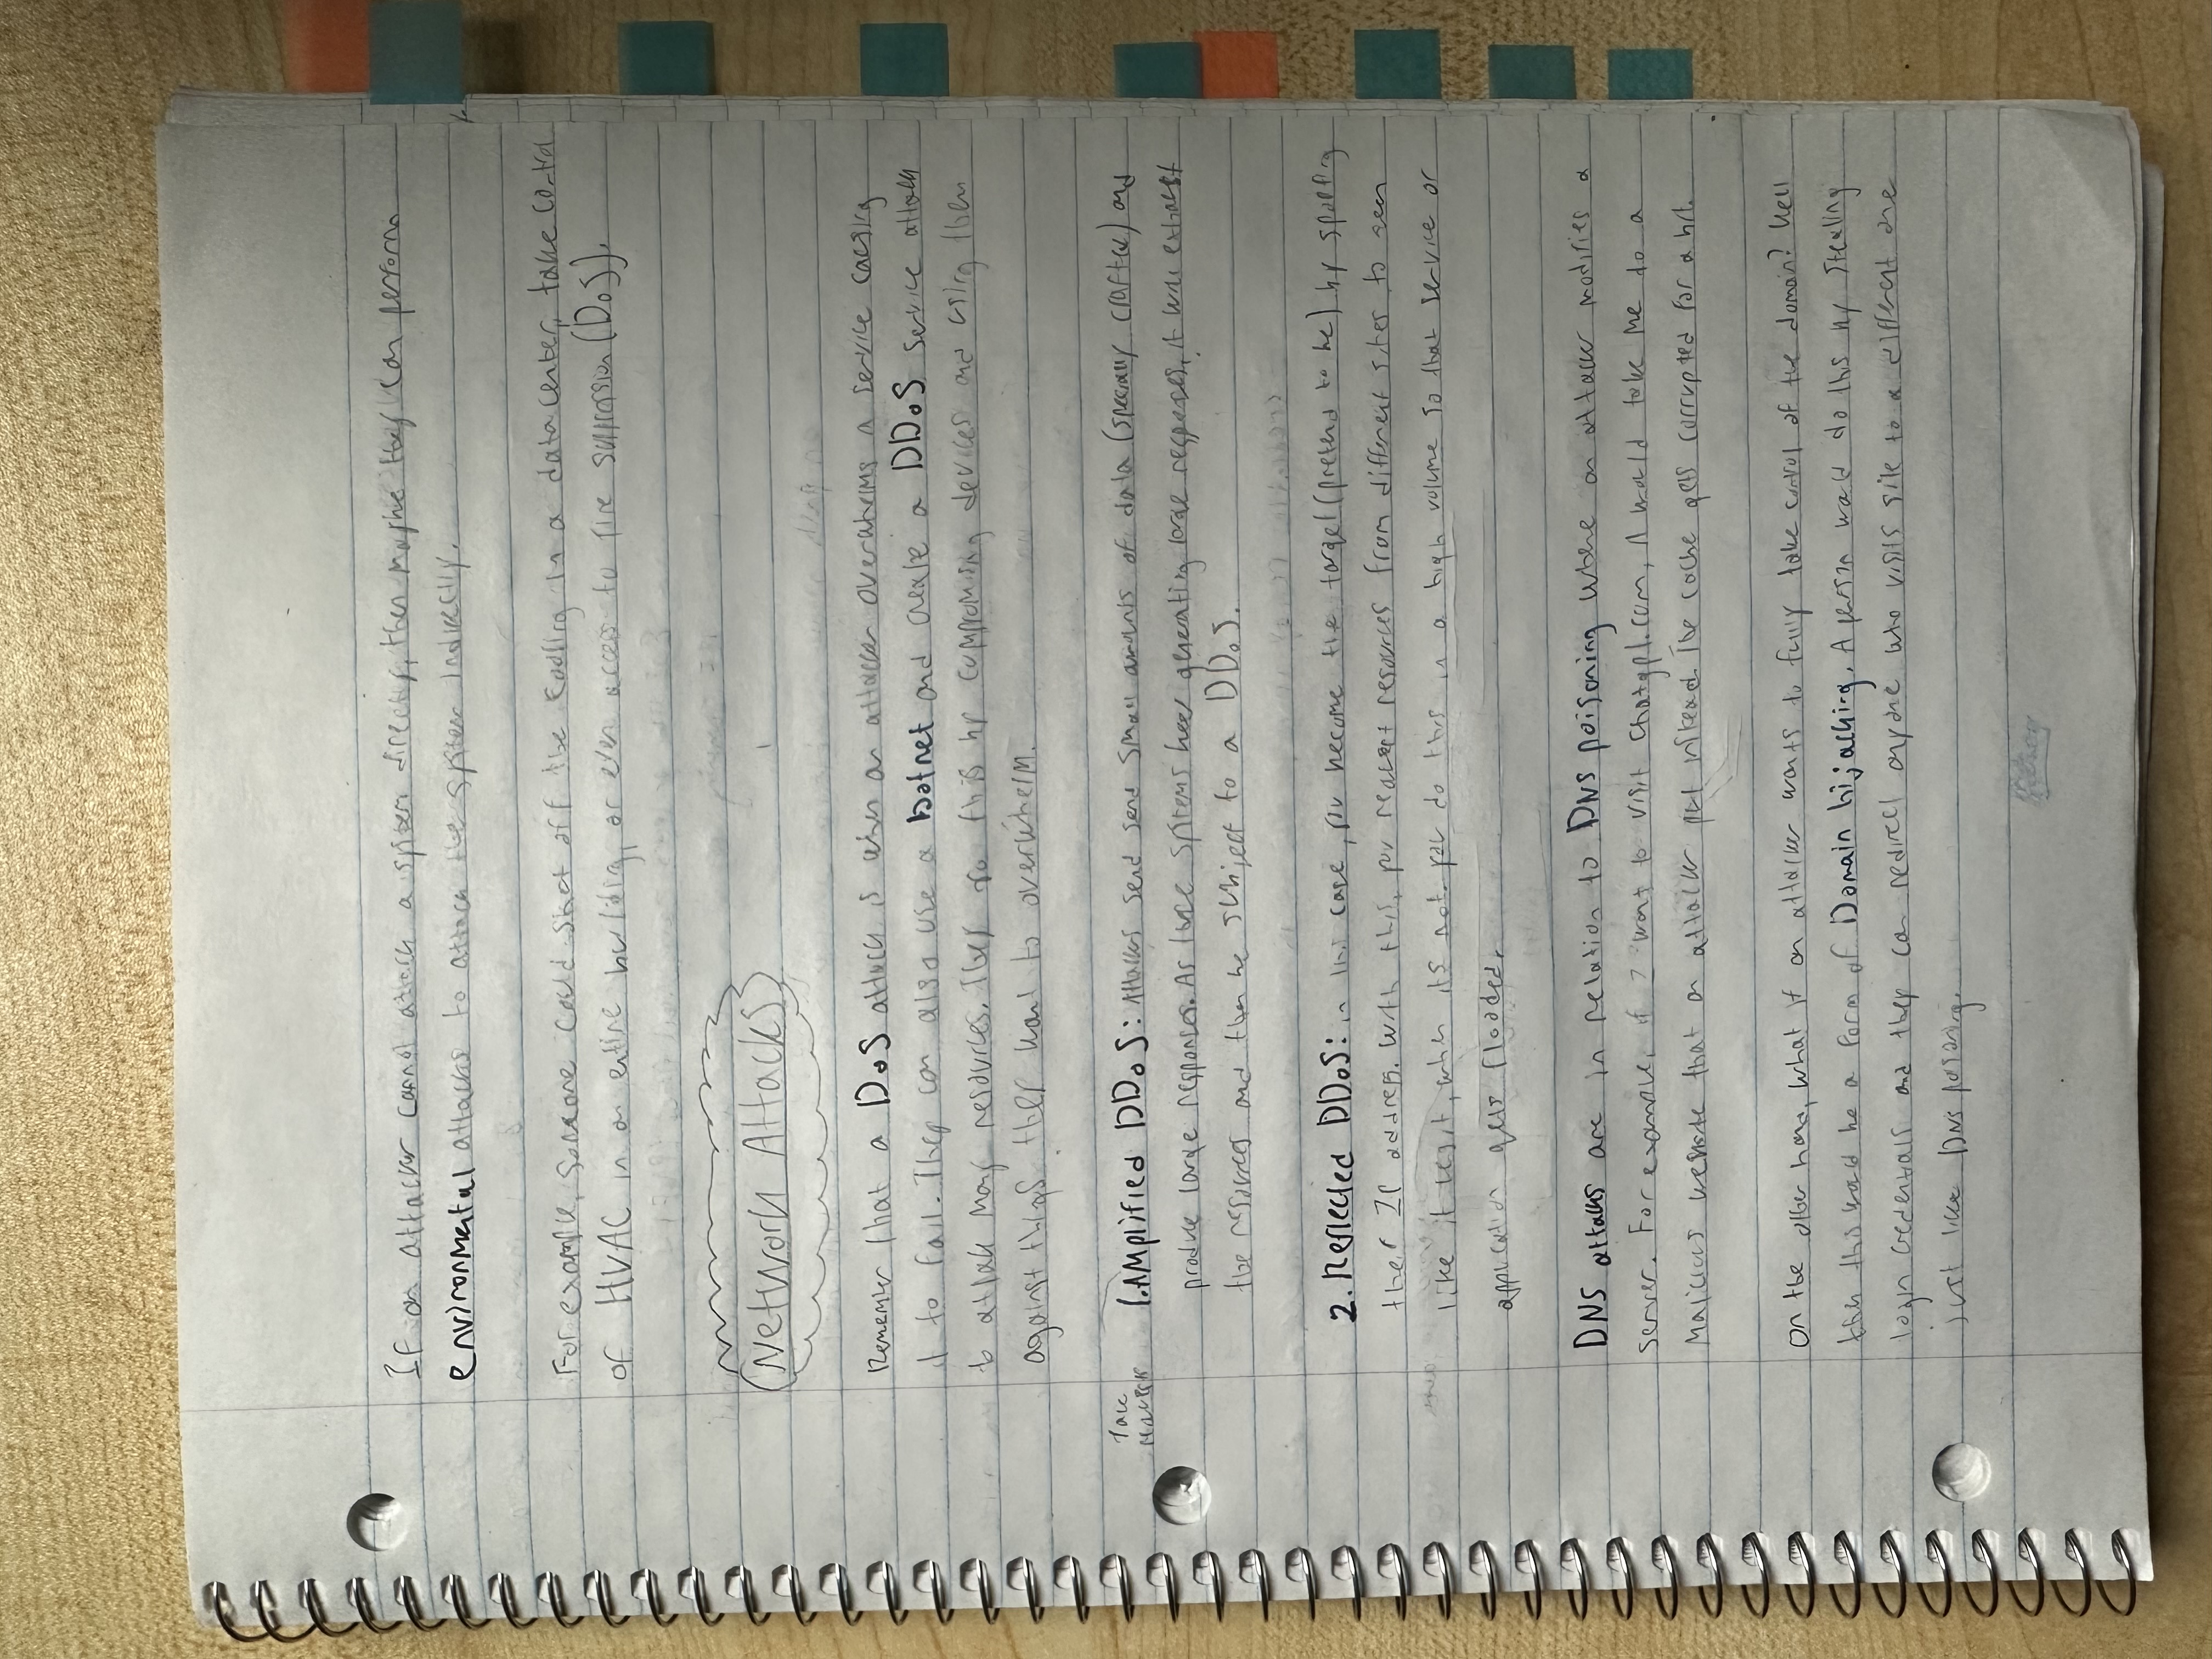 If an attacker cannot attack a system directly, then maybe they can perform
environmental attacks to attack the system indirectly.
For example, someone could shut off the cooling in a data center, take control
of HVAC in an entire building, or even access to fire suppression (DoS).
Network Attacks
Remember that a DoS attack is when an attacker overwhelms a service causing
it to fail. They can also use a botnet and create a DDoS service attack
to attack many resources. They do this by compromising devices and using them
against things they want to overwhelm.
1. Amplified DDoS: Attackers send send small amounts of data (specially crafted) and
produce large responses. As these systems keep generating large responses, it will exhaust
the resources and then be subject to a DDoS.
2. Reflected DDoS: in this case, you become the target (pretend to be) by spoofing
their IP address. With this, you request resources from different sites to seem
like it legit, when its not. you do this in a high volume so that service or
application gets flooded.
DNS attacks are in relation to DNS poisoning where an attacker modifies a
server. For example, if I want to visit Chatgpt.com, it would take me to a
malicious website that an attacker put instead. The cache gets corrupted for a bit.
On the other hand, what if an attacker wants to fully take control of the domain? Well
then this would be a form of Domain hijacking. A person would do this by stealing
login credentials and they can redirect anyone who visits site to a different one
just like DNS poisoning.